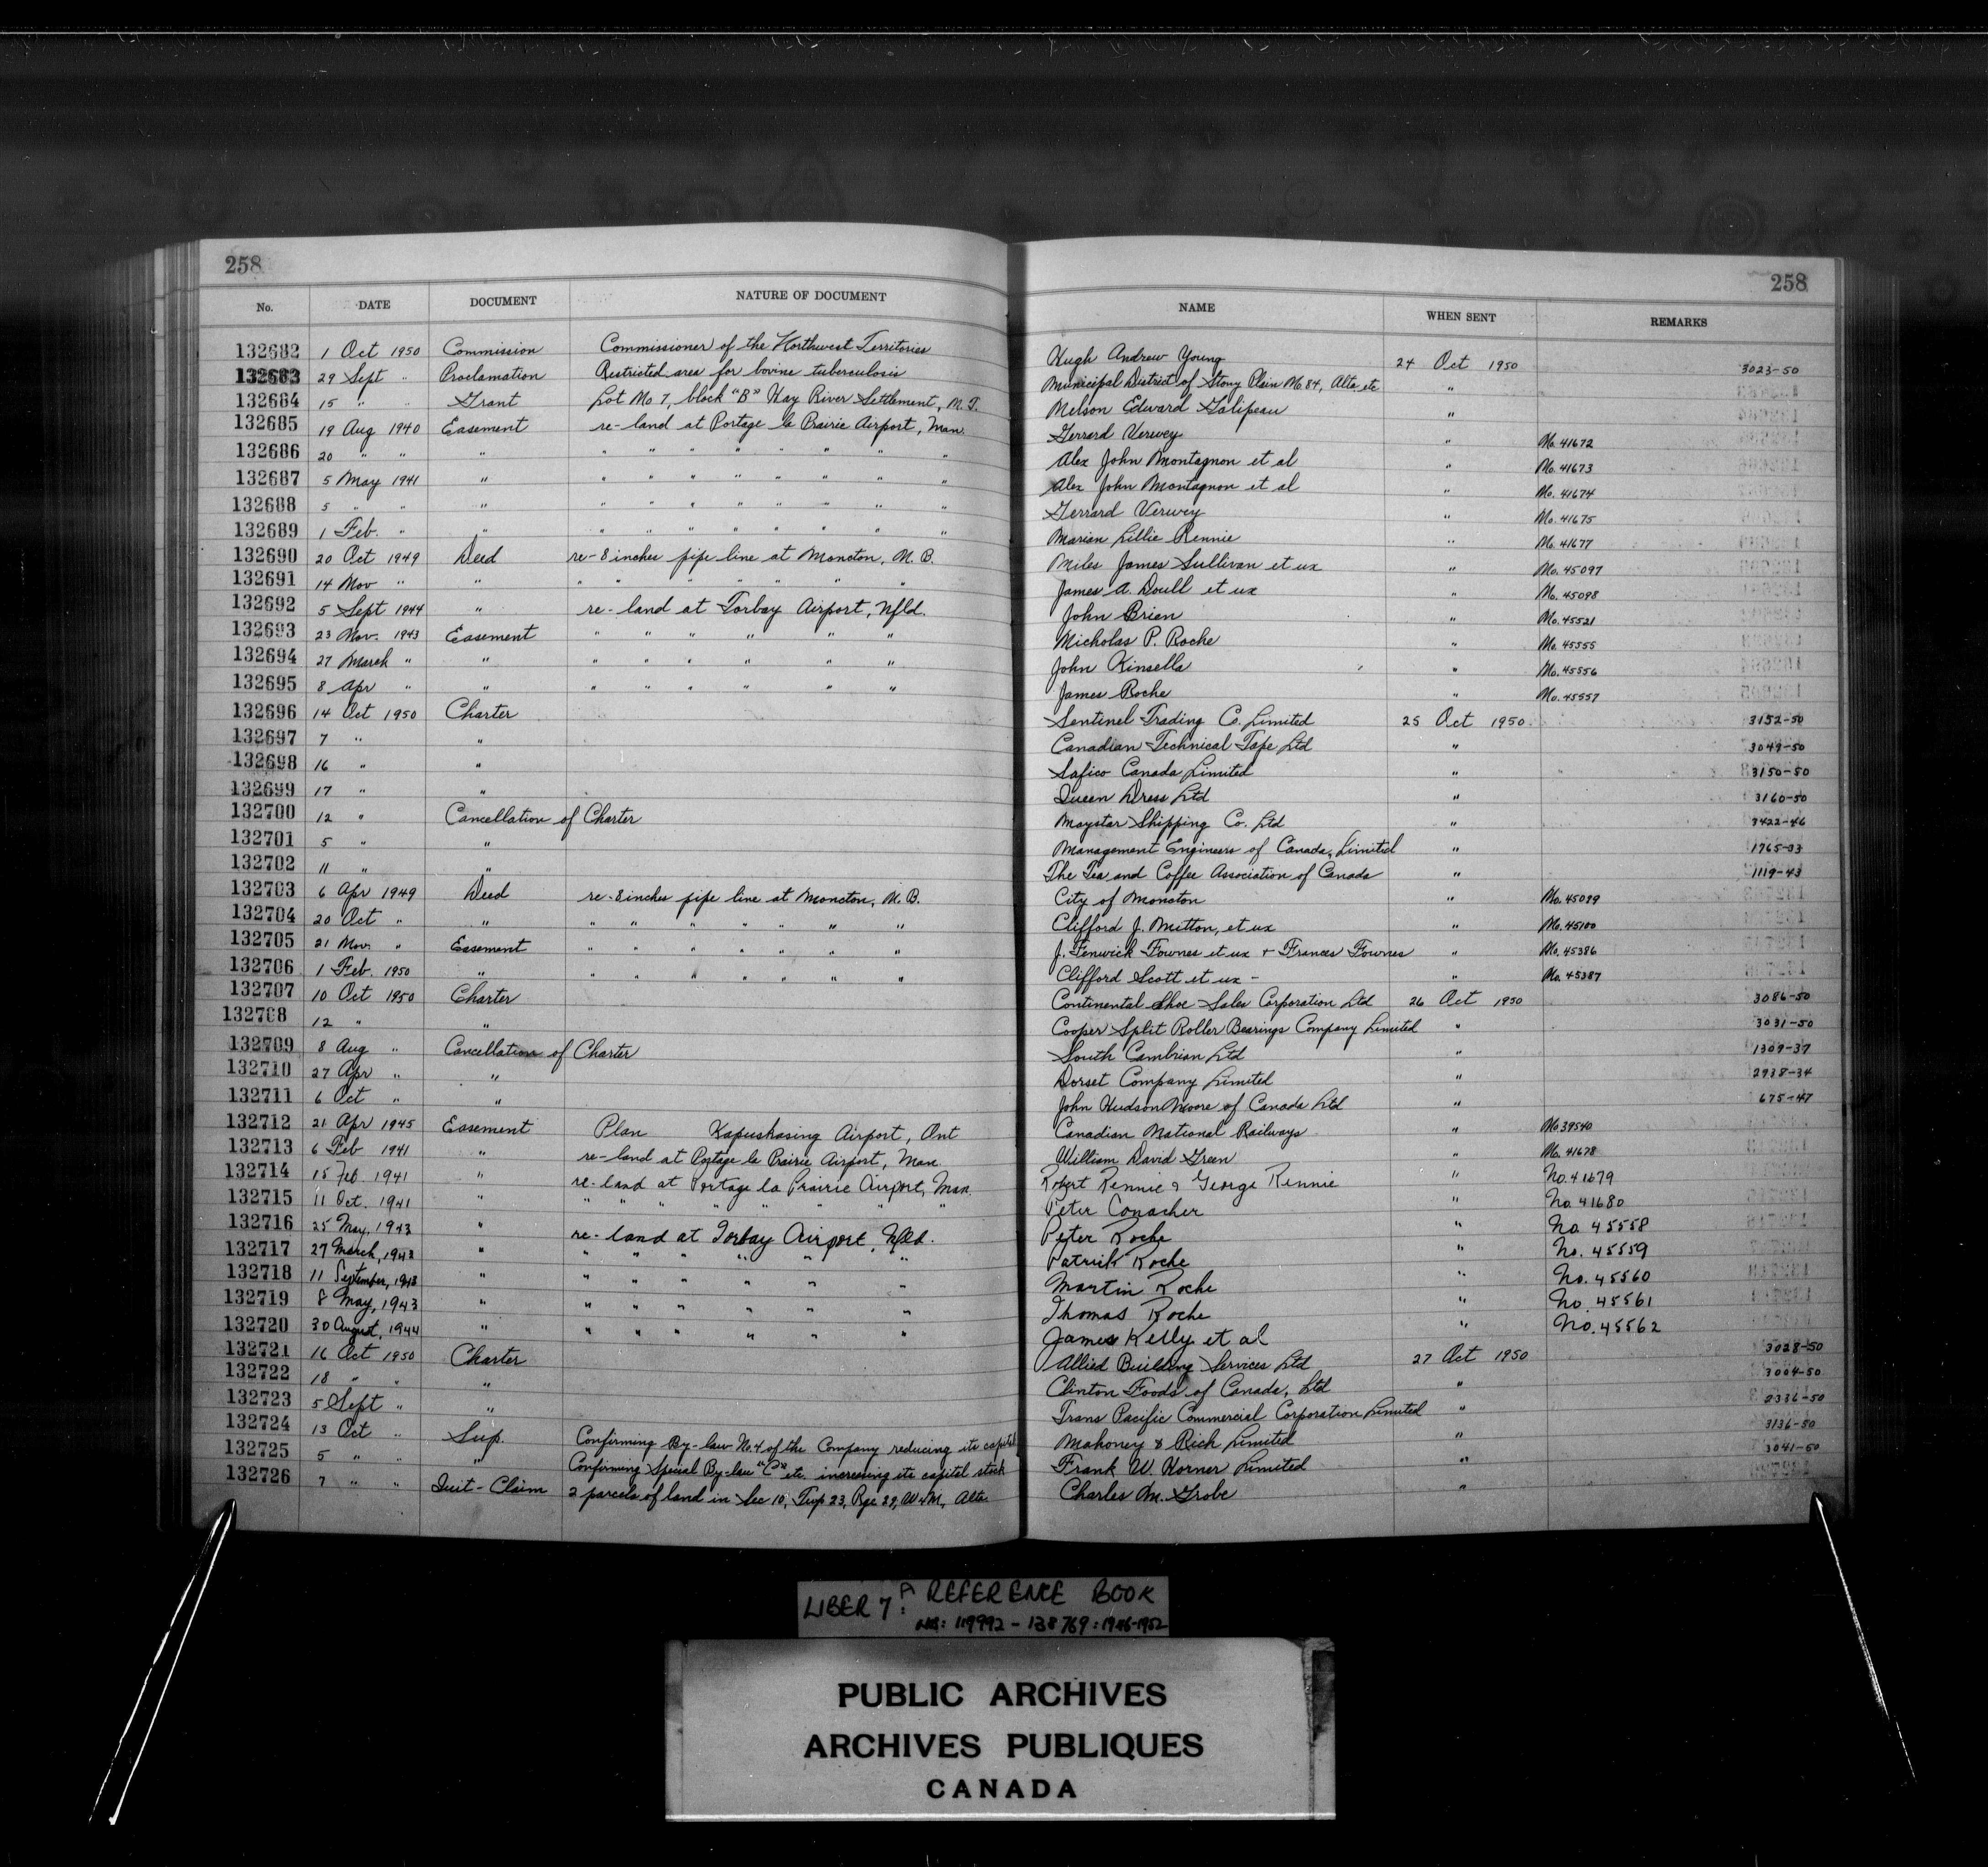 258
No. DATE DOCUMENT NATURE OF DOCUMENT
132682 1 Oct 1950 Commission Commissioner of the Northwest Territories
132683 29 Sept " Proclamation Restricted area for bovine tuberculosis
132684 15 " " Grant Lot No 7, block "B" Hay River Settlement, N.T.
132685 19 Aug 1940 Easement re-land at Portage la Prairie Airport, Man.
132686 20 " " " " " " " " " " "
132687 5 May 1941 " " " " " " " " "
132688 5 " " " " " " " " " " "
132689 1 Feb. " " " " " " " " " "
132690 20 Oct 1949 Deed re-8 inches pipe line at Moncton, N.B.
132691 14 Nov " " " " " " " " "
132692 5 Sept 1944 " re-land at Torbay Airport, Nfld.
132693 23 Nov. 1943 Easement " " " " " "
132694 27 March " " " " " " " "
132695 8 Apr " " " " " " " "
132696 14 Oct 1950 Charter
132697 7 " "
132698 16 " "
132699 17 " "
132700 12 " Cancellation of Charter
132701 5 " "
132702 11 " "
132703 6 Apr 1949 Deed re-8 inches pipe line at Moncton, N.B.
132704 20 Oct " " " " " " " " "
132705 21 Nov. " Easement " " " " " " "
132706 1 Feb. 1950 " " " " " " " "
132707 10 Oct 1950 Charter
132708 12 " "
132709 8 Aug " Cancellation of Charter
132710 27 Apr " "
132711 6 Oct " "
132712 21 Apr 1945 Easement Plan Kapuskasing Airport, Ont
132713 6 Feb 1941 " re-land at Portage la Prairie Airport, Man.
132714 15 Feb 1941 " re-land at Portage la Prairie Airport, Man.
132715 11 Oct. 1941 " " " " " " " " "
132716 25 May, 1943 " re-land at Torbay Airport, Nfld.
132717 27 March, 1943 " " " " " " "
132718 11 September, 1943 " " " " " " "
132719 8 May, 1943 " " " " " " "
132720 30 August, 1944 " " " " " " "
132721 16 Oct 1950 Charter
132722 18 " " "
132723 5 Sept " "
132724 13 Oct " Sup. Confirming By-law No.4 of the Company reducing its capital
132725 5 " " " Confirming Special By-law "C" etc. increasing its capital stock
132726 7 " " Quit-Claim 2 parcels of land in Sec 10, Twp 23, Rge 29, W4M, Alta.
258
NAME WHEN SENT REMARKS
Hugh Andrew Young 24 Oct 1950 3023-50
Municipal District of Stony Plain No 84, Alta etc "
Nelson Edward Galipeau "
Gerrard Verwey " No. 41672
Alex John Montagnon et al " No. 41673
Alex John Montagnon et al " No. 41674
Gerrard Verwey " No. 41675
Marion Lillie Rennie " No. 41677
Miles James Sullivan et ux " No. 45097
James A. Doull et ux " No. 45098
John Brien " No. 45521
Nicholas P. Roche " No. 45555
John Kinsella " No. 45556
James Roche " No. 45557
Sentinel Trading Co. Limited 25 Oct 1950 3152-50
Canadian Technical Tape Ltd " 3049-50
Safico Canada Limited " 3150-50
Queen Dress Ltd " 3160-50
Maystar Shipping Co. Ltd " 3422-46
Management Engineers of Canada, Limited " 1765-33
The Tea and Coffee Association of Canada " 1119-43
City of Moncton " No. 45099
Clifford J. Mitton, et ux " No. 45100
J. Fenwick Fownes et ux + Frances Fownes " No. 45386
Clifford Scott et ux - " No. 45387
Continental Shoe Sales Corporation Ltd 26 Oct 1950 3086-50
Cooper Split Roller Bearings Company Limited " 3031-50
South Cambrian Ltd " 1309-37
Dorset Company Limited " 2938-34
John Hudson Moore of Canada Ltd " 675-47
Canadian National Railways " No. 39540
William David Green " No. 41678
Robert Rennie & George Rennie " No. 41679
Peter Conacher " No. 41680
Peter Roche " No. 45558
Patrick Roche " No. 45559
Martin Roche " No. 45560
Thomas Roche " No. 45561
James Kelly et al " No. 45562
Allied Building Services Ltd 27 Oct 1950 3028-50
Clinton Foods of Canada, Ltd " 3004-50
Trans Pacific Commercial Corporation Limited " 2336-50
Mahoney & Rich Limited " 3136-50
Frank W. Horner Limited " 3041-50
Charles M. Grobe "
LIBER 7A: REFERENCE BOOK
NOS: 119992 - 138769: 1946-1952
PUBLIC ARCHIVES
ARCHIVES PUBLIQUES
CANADA